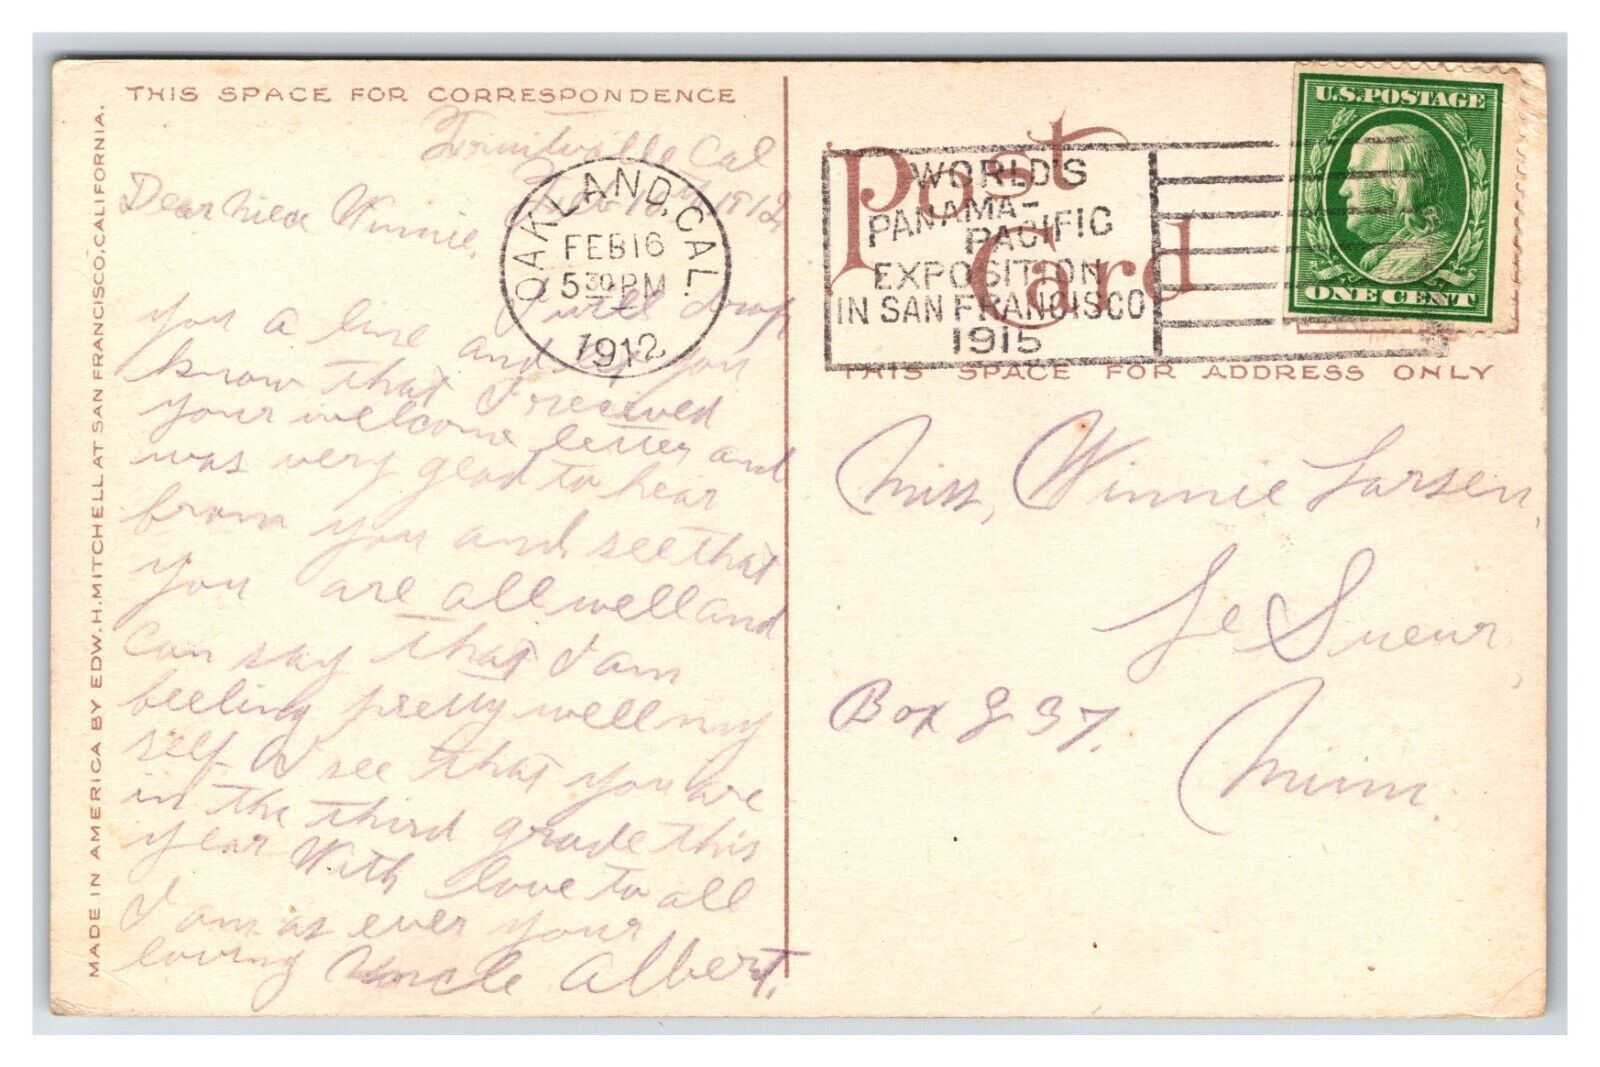 THIS SPACE FOR CORRESPONDENCE
Fruitvale Cal
Feb 1912
Dear Niece Winnie,
I will drop
you a line and let you
know that I received
your welcome letter and
was very glad to hear
from you and see that
you are all well and
can say that I am
feeling pretty well my
self I see that you are
in the third grade this
year With love to all
I am as ever your
loving Uncle Albert.
MADE IN AMERICA BY EDW. H. MITCHELL AT SAN FRANCISCO, CALIFORNIA.
OAKLAND, CAL.
FEB 16
5 30 PM
1912
WORLD'S
PANAMA-
PACIFIC
EXPOSITION
IN SAN FRANCISCO
1915
Post
Card
U.S. POSTAGE
ONE CENT
THIS SPACE FOR ADDRESS ONLY
Miss, Winnie Larsen,
Le Sueur,
Box 837.
Minn.